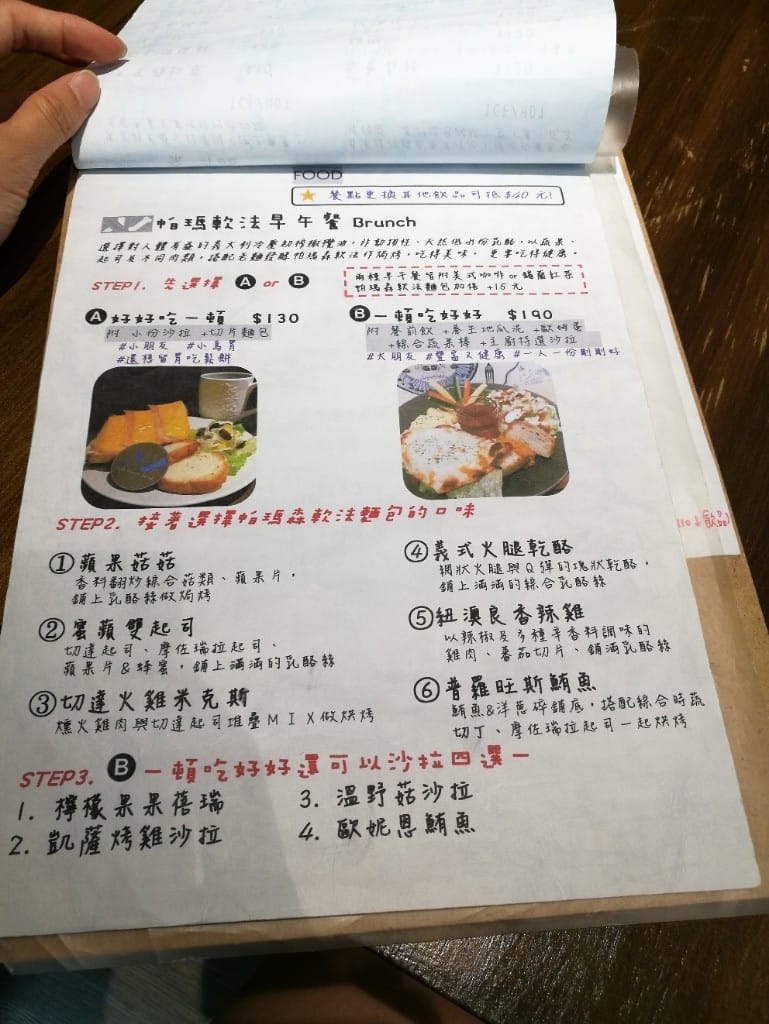 FOOD
餐點更換其他飲品可抵$40元!
帕瑪軟法早午餐 Brunch
選擇對人體有益的義大利冷壓初榨橄欖油,非動物性、天然低水份乳酪,以蔬果、
起司及不同肉類,搭配老麵發酵帕瑪森軟法作焗烤,吃得美味,更要吃得健康。
兩種早午餐皆附美式咖啡or錫蘭紅茶
帕瑪森軟法麵包加倍 +15元
STEP1. 先選擇 A or B
A 好好吃一頓 $130
附 小份沙拉 +切片麵包
#小朋友 #小鳥胃
#還想留胃吃鬆餅
B 一頓吃好好 $190
附 餐前飲 +養生地瓜泥 +歐姆蛋
+綜合蔬果棒 +主廚特選沙拉
#大朋友 #豐富又健康 #一人一份剛剛好
STEP2. 接著選擇帕瑪森軟法麵包的口味
① 蘋果菇菇
香料翻炒綜合菇類、蘋果片,
鋪上乳酪絲做焗烤
② 蜜蘋雙起司
切達起司、摩佐瑞拉起司、
蘋果片&蜂蜜,鋪上滿滿的乳酪絲
③ 切達火雞米克斯
燻火雞肉與切達起司堆疊MIX做烘烤
④ 義式火腿乾酪
網狀火腿與Q彈的塊狀乾酪,
鋪上滿滿的綜合乳酪絲
⑤ 紐澳良香辣雞
以辣椒及多種辛香料調味的
雞肉、番茄切片、鋪滿乳酪絲
⑥ 普羅旺斯鮪魚
鮪魚&洋蔥碎鋪底,搭配綜合時蔬
切丁、摩佐瑞拉起司一起烘烤
STEP3. B 一頓吃好好還可以沙拉四選一
1. 檸檬果果蓓瑞
2. 凱薩烤雞沙拉
3. 溫野菇沙拉
4. 歐妮恩鮪魚